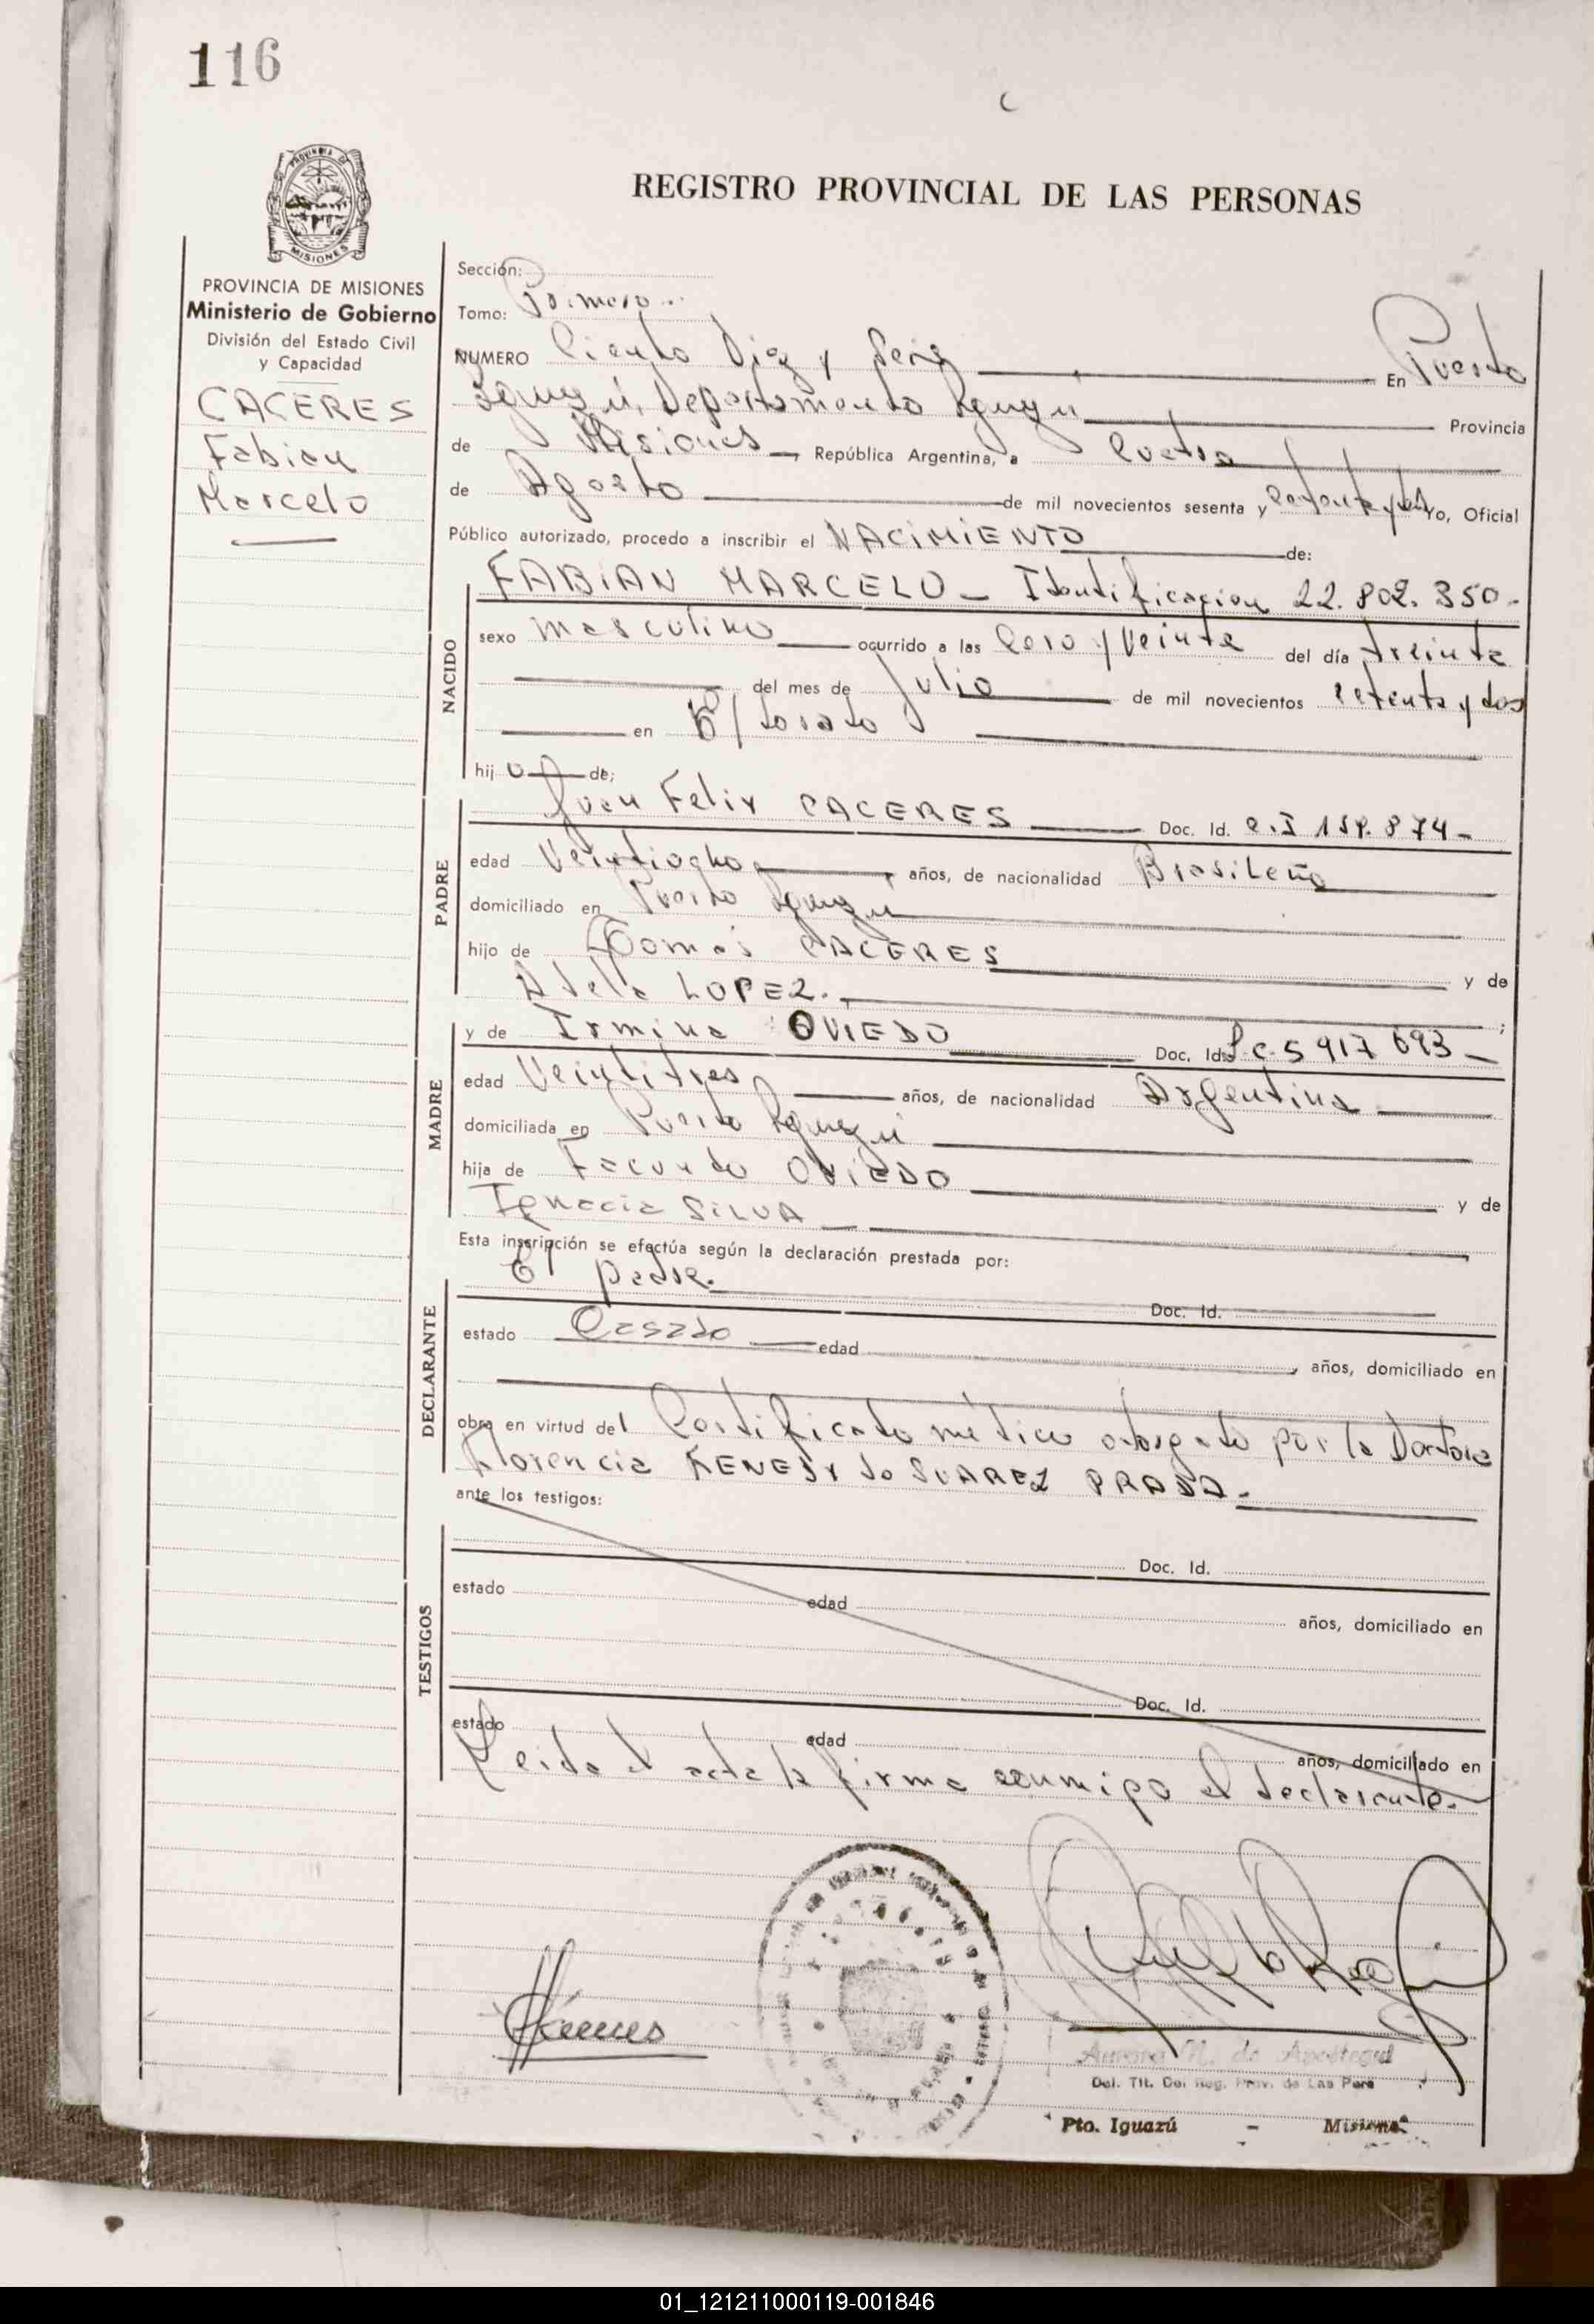 116
REGISTRO PROVINCIAL DE LAS PERSONAS
PROVINCIA DE MISIONES
PROVINCIA DE MISIONES
Ministerio de Gobierno
División del Estado Civil
y Capacidad
CACERES
Fabian
Marcelo
Sección:
Tomo: Primero
NUMERO Ciento Diez y Seis En Puerto
Iguazú, Departamento Iguazú Provincia
de Misiones, República Argentina, a Cuatro
de Agosto de mil novecientos sesenta y yo, Oficial
Público autorizado, procedo a inscribir el NACIMIENTO de:
NACIDO
FABIAN MARCELO - Identificacion 22.802.350-
sexo masculino ocurrido a las Cero y Veinte del día treinta
del mes de Julio de mil novecientos setenta y dos
en
hijo de;
PADRE
Juan Felix CACERES Doc. Id. C.I 874-
edad Veintiocho, años, de nacionalidad Brasileña
domiciliado en Puerto Iguazú
hijo de Tomás CACERES y de
Adela LOPEZ.
MADRE
y de Irmina OVIEDO Doc. Id. L.C. 5 917 693-
edad Veintitres años, de nacionalidad Argentina
domiciliada en Puerto Iguazú
hija de Facundo OVIEDO y de
Ignacia SILVA
Esta inscripción se efectúa según la declaración prestada por:
DECLARANTE
El padre. Doc. Id.
estado Casado edad , años, domiciliado en
obra en virtud del Certificado médico otorgado por la Doctora
Florencia KENEDY de SUAREZ PRADA-
ante los testigos:
TESTIGOS
Doc. Id.
estado edad años, domiciliado en
Doc. Id.
estado edad años, domiciliado en
Leida el acta la firma conmigo el declarante.
Aurora de
Del. Tit. Del Reg. Prov. de Las Pers
Pto. Iguazú - Misiones
01_121211000119-001846